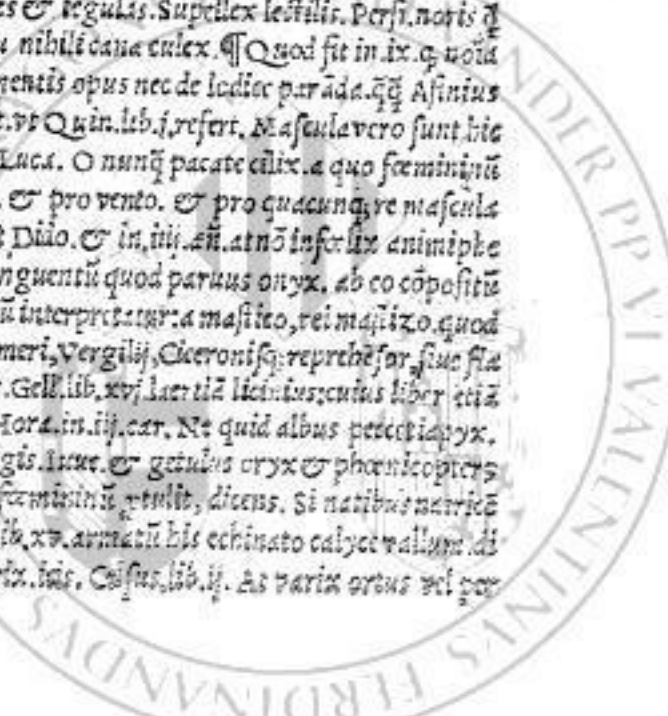 es & regulas. Supellex lectilis. Persi. noris q̃
u nihili cana culex. ¶ Quod fit in .ix. q. noĩa
mentis opus nec de lodice parãda. q̃q̃ Asinius
t. vt Quin. lib. j. refert. Mascula vero sunt hic
Luca. O nunq̃ pacate cilix. a quo fœmininũ
. & pro vento. & pro quacunq; re mascula
t Dido. & in. iiij. æñ. at nõ infœlix animi phe
nguentũ quod paruus onyx. ab eo cõpositũ
ũ interpretatur: a mastico, vel mastizo. quod
meri, Vergilij, Ciceronisq; reprehẽsor, siue fla
. Gell. lib. xvj. laertiã licinius: cuius liber etiã
Hora. in. iij. car. Ne quid albus peccet iapyx.
gis. Iuue. & getulus oryx & phœnicopterꝰ
fœmininũ, rtulit, dicens. Si natibus natricẽ
ib. xv. armatũ his echinato calyce vallum. di
rix. icis. Celsus, lib. ij. At varix ortus vel per
NDER PP VI VALENTINVS FERDINANDVS